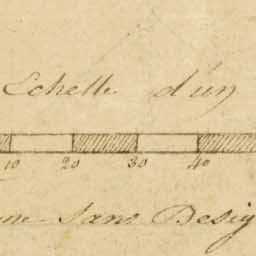 Echelle d'un
10 20 30 40
Sans Desig